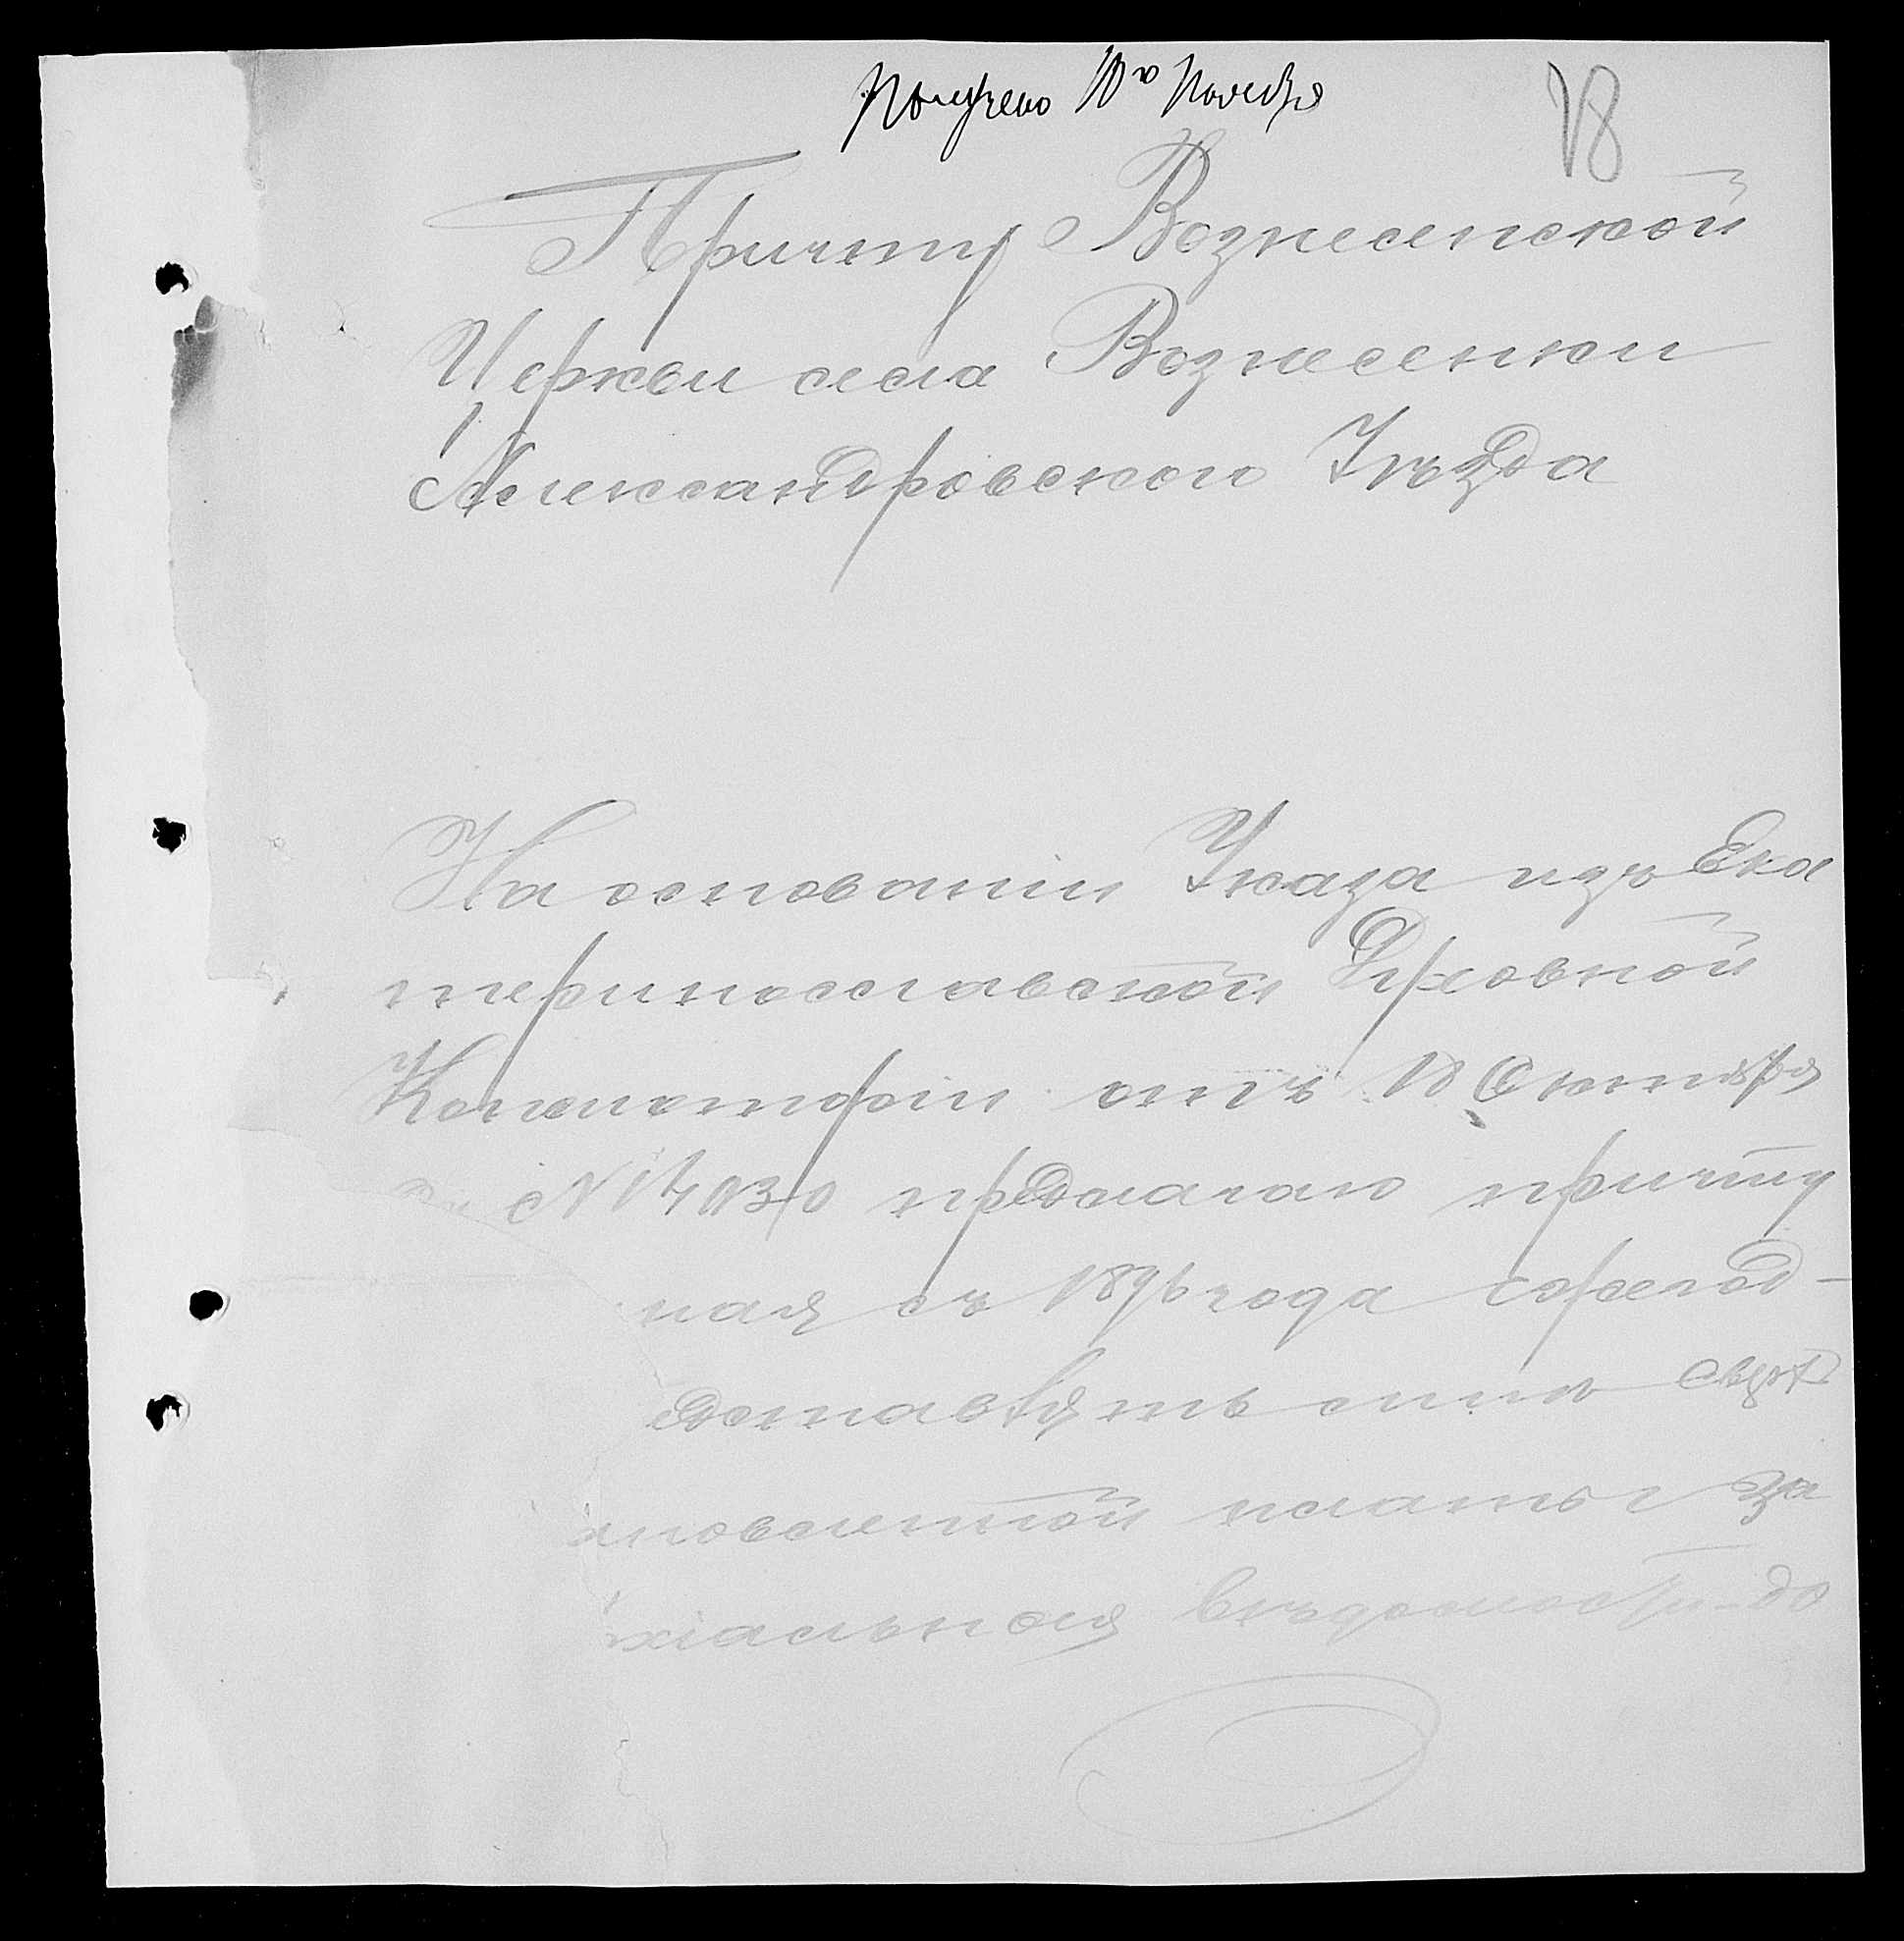 Получено 10го Ноября
18
Причту Вознесенской
Церкви села Вознесенки
Александровскаго Уѣзда
На основаніи Указа изъ Ека
теринославской Духовной
Консисторіи отъ 18 Октября
за № предлагаю причту
ная съ 1896 года ежегод-
доставлять мнѣ
новленной платы за
хіальныя вѣдомости до